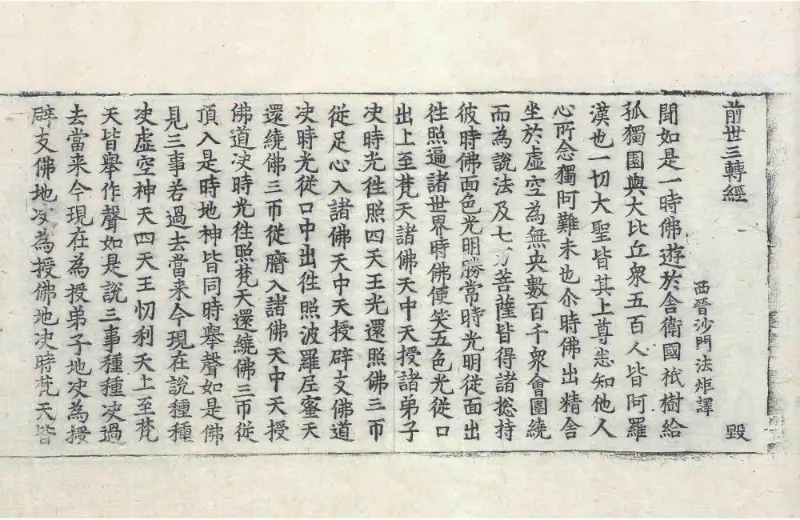 前世三轉經 毀
西晉沙門法炬譯
聞如是一時佛遊於舍衛國祇樹給
孤獨園與大比丘衆五百人皆阿羅
漢也一切大聖皆其上尊悉知他人
心所念獨阿難未也尒時佛出精舍
坐於虛空為無央數百千衆會圍繞
而為說法及七万菩薩皆得諸捴持
彼時佛面色光明勝常時光明從面出
徃照遍諸世界時佛便笑五色光從口
出上至梵天諸佛天中天授諸弟子
决時光徃照四天王光還照佛三帀
從足心入諸佛天中天授辟支佛道
决時光從口中出徃照波羅尼蜜天
還繞佛三帀從臍入諸佛天中天授
佛道决時光徃照梵天還繞佛三帀從
頂入是時地神皆同時舉聲如是佛
見三事若過去當来今現在說種種
决虛空神天四天王忉利天上至梵
天皆舉作聲如是說三事種種决過
去當来今現在為授弟子地决為授
辟支佛地决為授佛地决時梵天皆